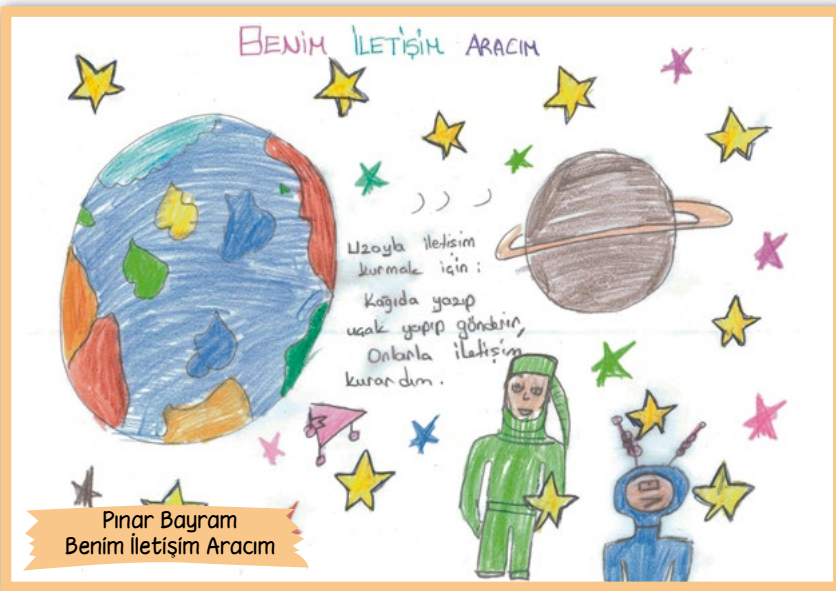 BENİM İLETİŞİM ARACIM
Uzayla iletişim
kurmak için :
Kağıda yazıp
uçak yapıp gönderip,
Onlarla iletişim
kurardım.
Pınar Bayram
Benim İletişim Aracım